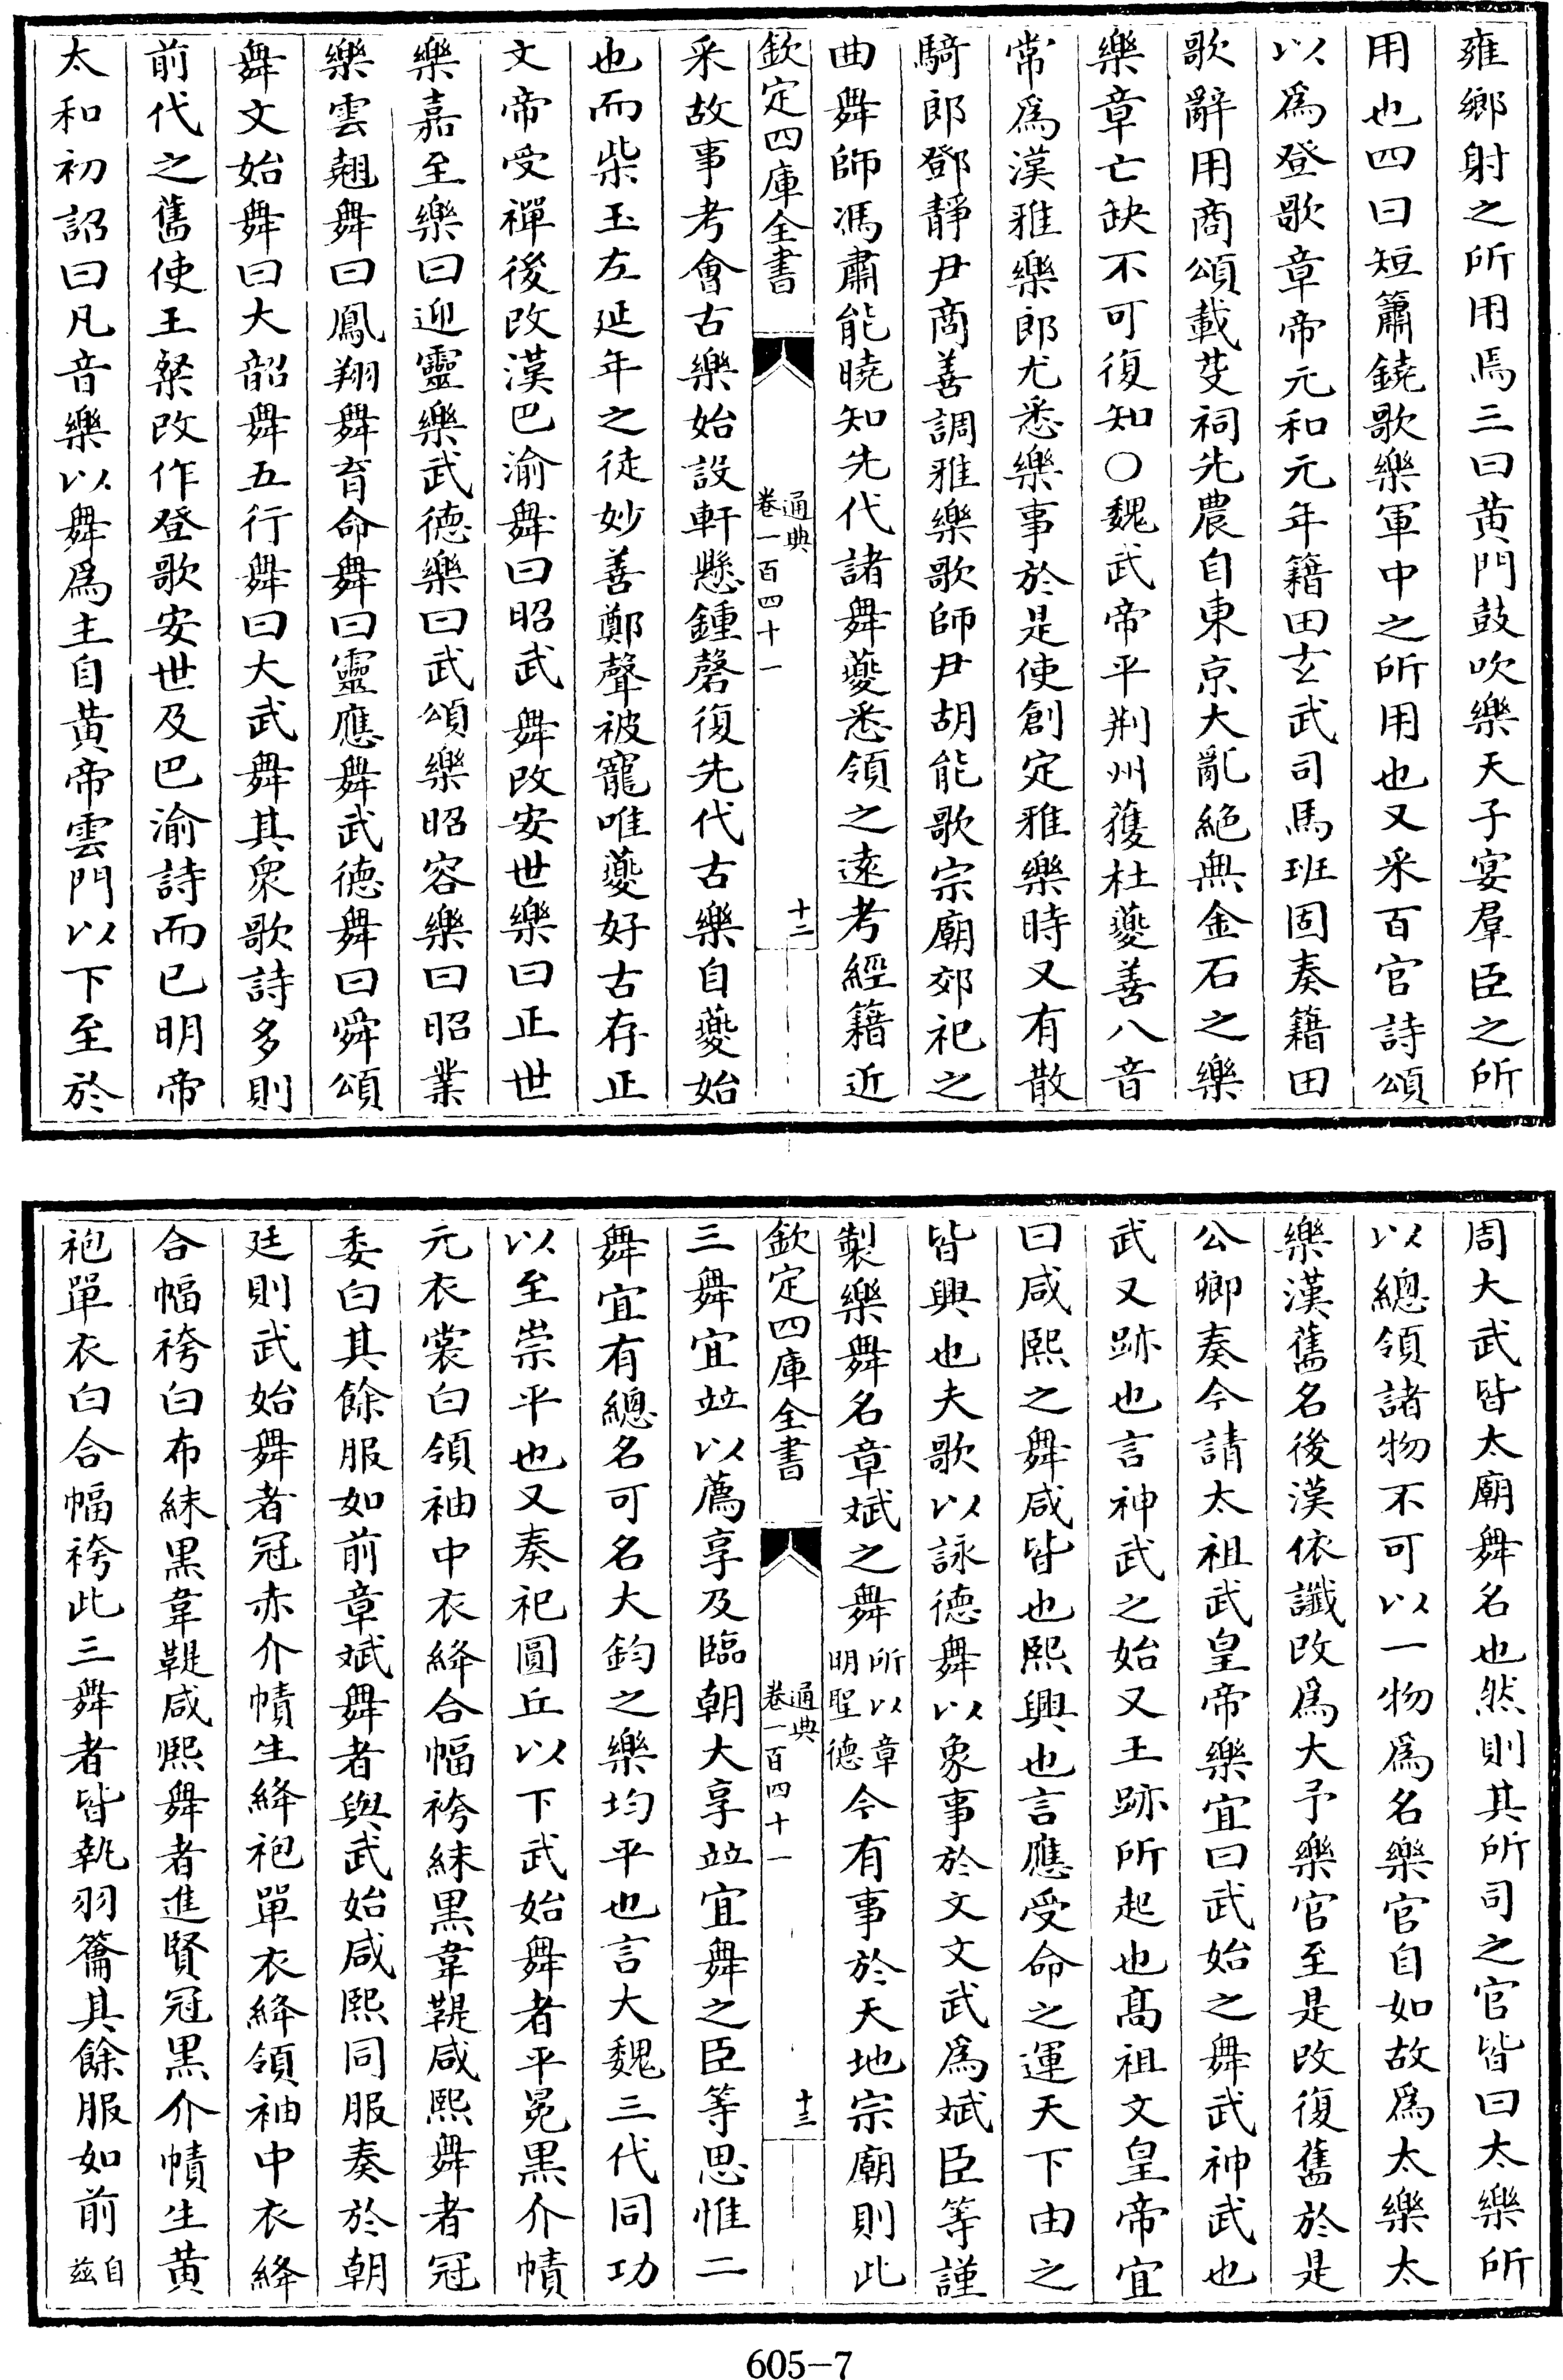 雍鄉射之所用焉三曰黄門鼓吹樂天子宴羣臣之所
用也四曰短簫鐃歌樂軍中之所用也又采百官詩頌
以為登歌章帝元和元年籍田玄武司馬班固奏籍田
歌辭用商頌載芟祠先農自東京大亂絶無金石之樂
樂章亡缺不可復知〇魏武帝平荆州獲杜夔善八音
常為漢雅樂郎尤悉樂事於是使創定雅樂時又有散
騎郎鄧靜尹商善調雅樂歌師尹胡能歌宗廟郊祀之
曲舞師馮肅能曉知先代諸舞夔悉領之遠考經籍近
欽定四庫全書
通典
卷一百四十一
十二
采故事考會古樂始設軒懸鍾磬復先代古樂自夔始
也而柴玉左延年之徒妙善鄭聲被寵唯夔好古存正
文帝受禪後改漢巴渝舞曰昭武舞改安世樂曰正世
樂嘉至樂曰迎靈樂武德樂曰武頌樂昭容樂曰昭業
樂雲翹舞曰鳳翔舞育命舞曰靈應舞武德舞曰舜頌
舞文始舞曰大韶舞五行舞曰大武舞其衆歌詩多則
前代之舊使王粲改作登歌安世及巴渝詩而已明帝
太和初詔曰凡音樂以舞為主自黄帝雲門以下至於
周大武皆太廟舞名也然則其所司之官皆曰太樂所
以總領諸物不可以一物為名樂官自如故為太樂太
樂漢舊名後漢依讖改為大予樂官至是改復舊於是
公卿奏今請太祖武皇帝樂宜曰武始之舞武神武也
武又跡也言神武之始又王跡所起也髙祖文皇帝宜
曰咸熙之舞咸皆也熙興也言應受命之運天下由之
皆興也夫歌以詠德舞以象事於文文武為斌臣等謹
製樂舞名章斌之舞所以章明聖德今有事於天地宗廟則此
欽定四庫全書
通典
卷一百四十一
十三
三舞宜竝以薦享及臨朝大享竝宜舞之臣等思惟二
舞宜有總名可名大鈞之樂均平也言大魏三代同功
以至崇平也又奏祀圓丘以下武始舞者平冕黒介幘
元衣裳白領袖中衣絳合幅袴絑黒韋鞮咸熙舞者冠
委白其餘服如前章斌舞者與武始咸熙同服奏於朝
廷則武始舞者冠赤介幘生絳袍單衣絳領袖中衣絳
合幅袴白布絑黒韋鞮咸熙舞者進賢冠黒介幘生黄
袍單衣白合幅袴此三舞者皆執羽籥其餘服如前自兹
605-7